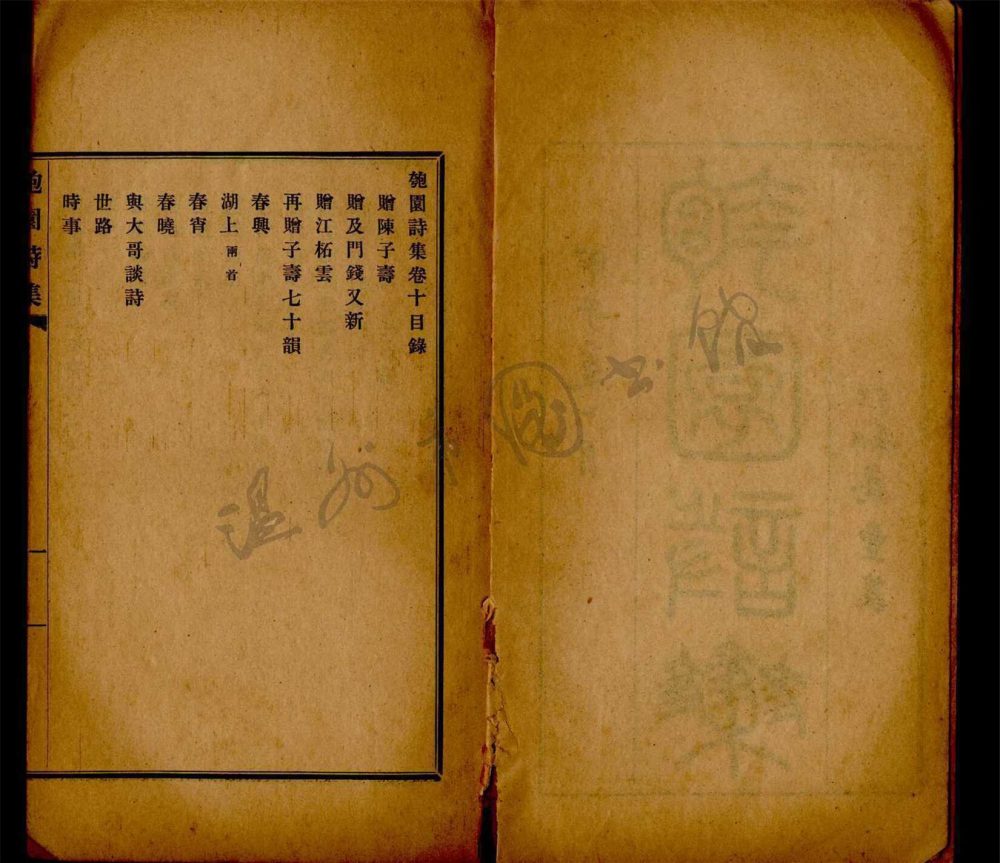 匏園詩集卷十目錄
贈陳子壽
贈及門錢又新
贈江柘雲
再贈子壽七十韻
春興
湖上 兩首
春宵
春曉
與大哥談詩
世路
時事
匏園詩集
温州市图书馆